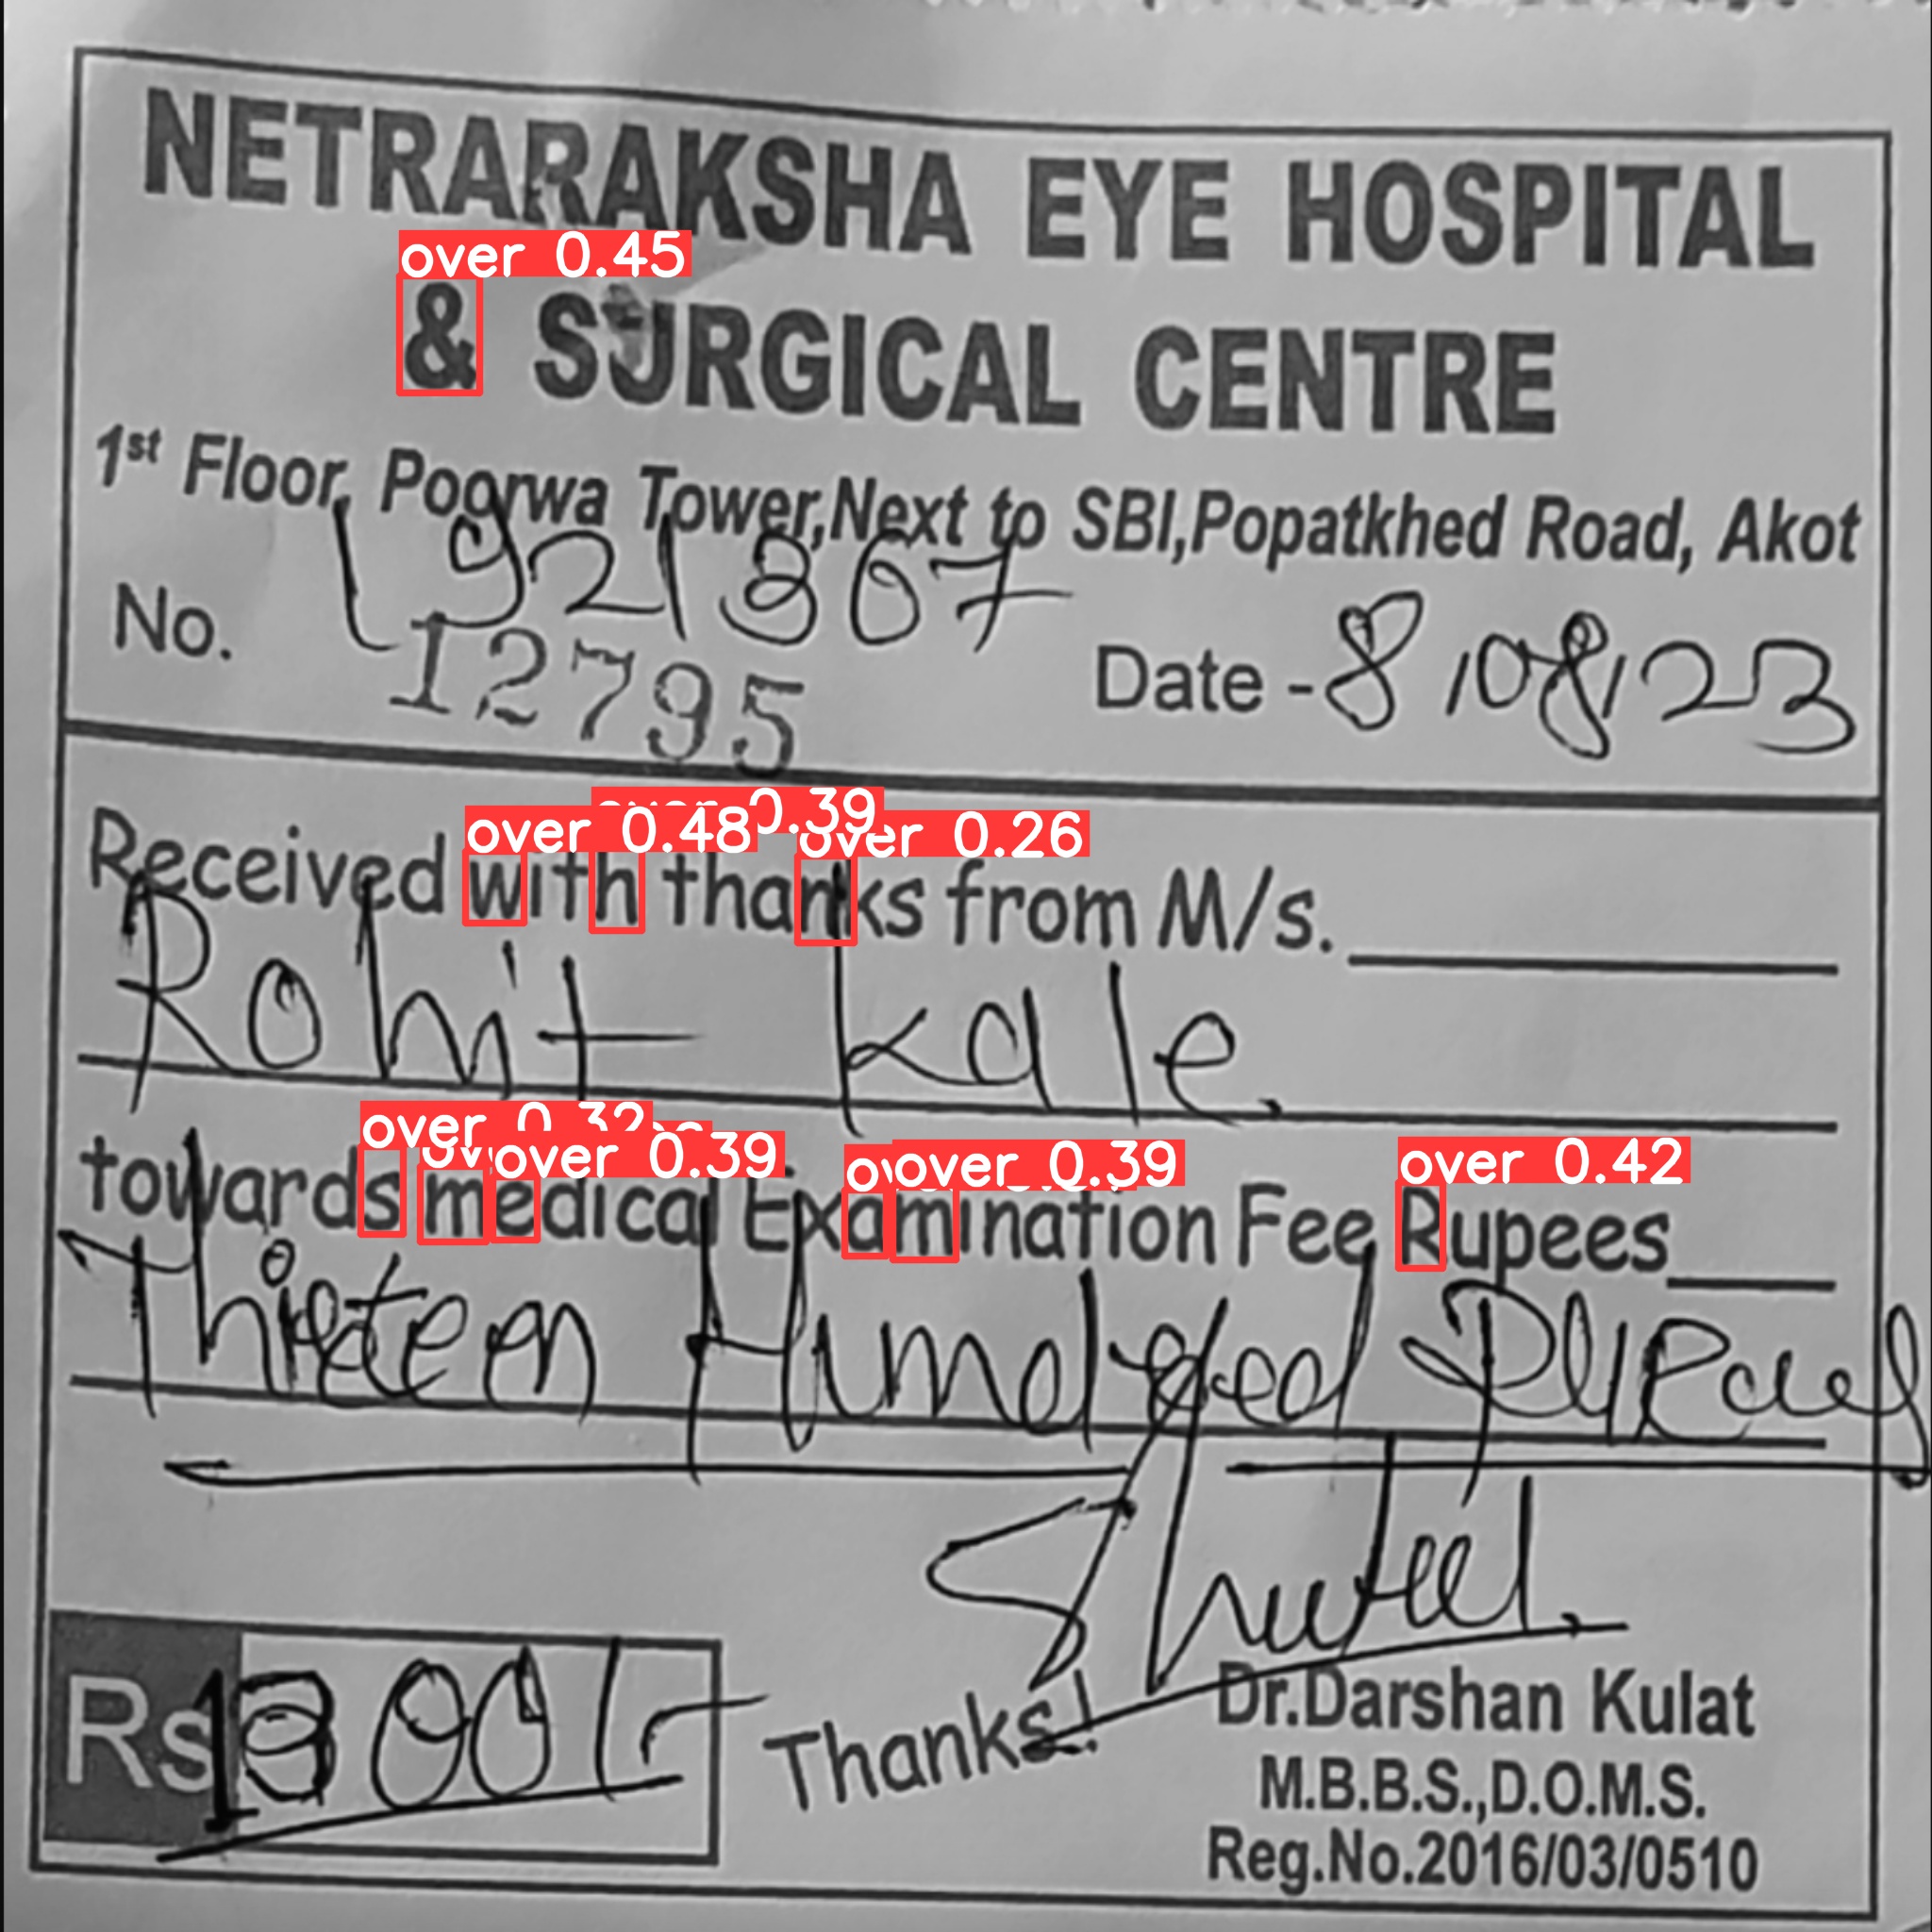 NETRARAKSHA EYE HOSPITAL
over 0.45
& SURGICAL CENTRE
1st Floor, Poorwa Tower,Next to SBI,Popatkhed Road, Akot
1921867
No. 12795 Date - 8/08/23
0.39
over 0.48 over 0.26
Received with thanks from M/s.
Rohit Kale
over 0.32
over 0.39 over 0.39 over 0.42
towards medical Examination Fee Rupees
Thirteen Hundred
Rs 1300/-
Thanks!
Dr.Darshan Kulat
M.B.B.S.,D.O.M.S.
Reg.No.2016/03/0510